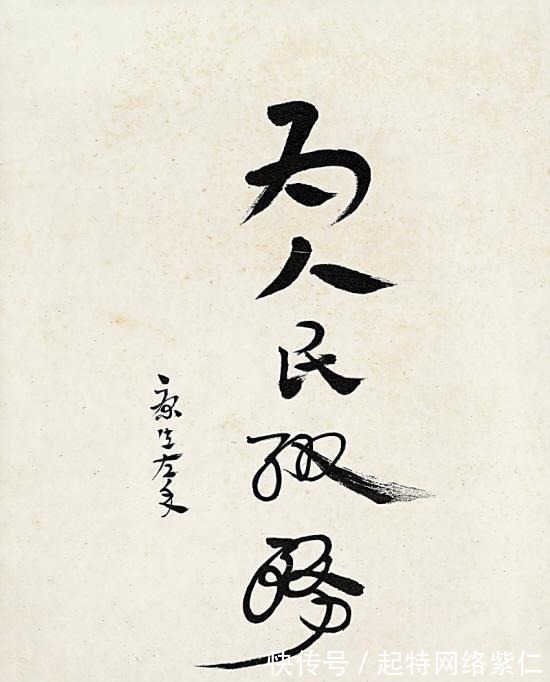 为人民服務
康生左手
快传号/起特网络紫仁